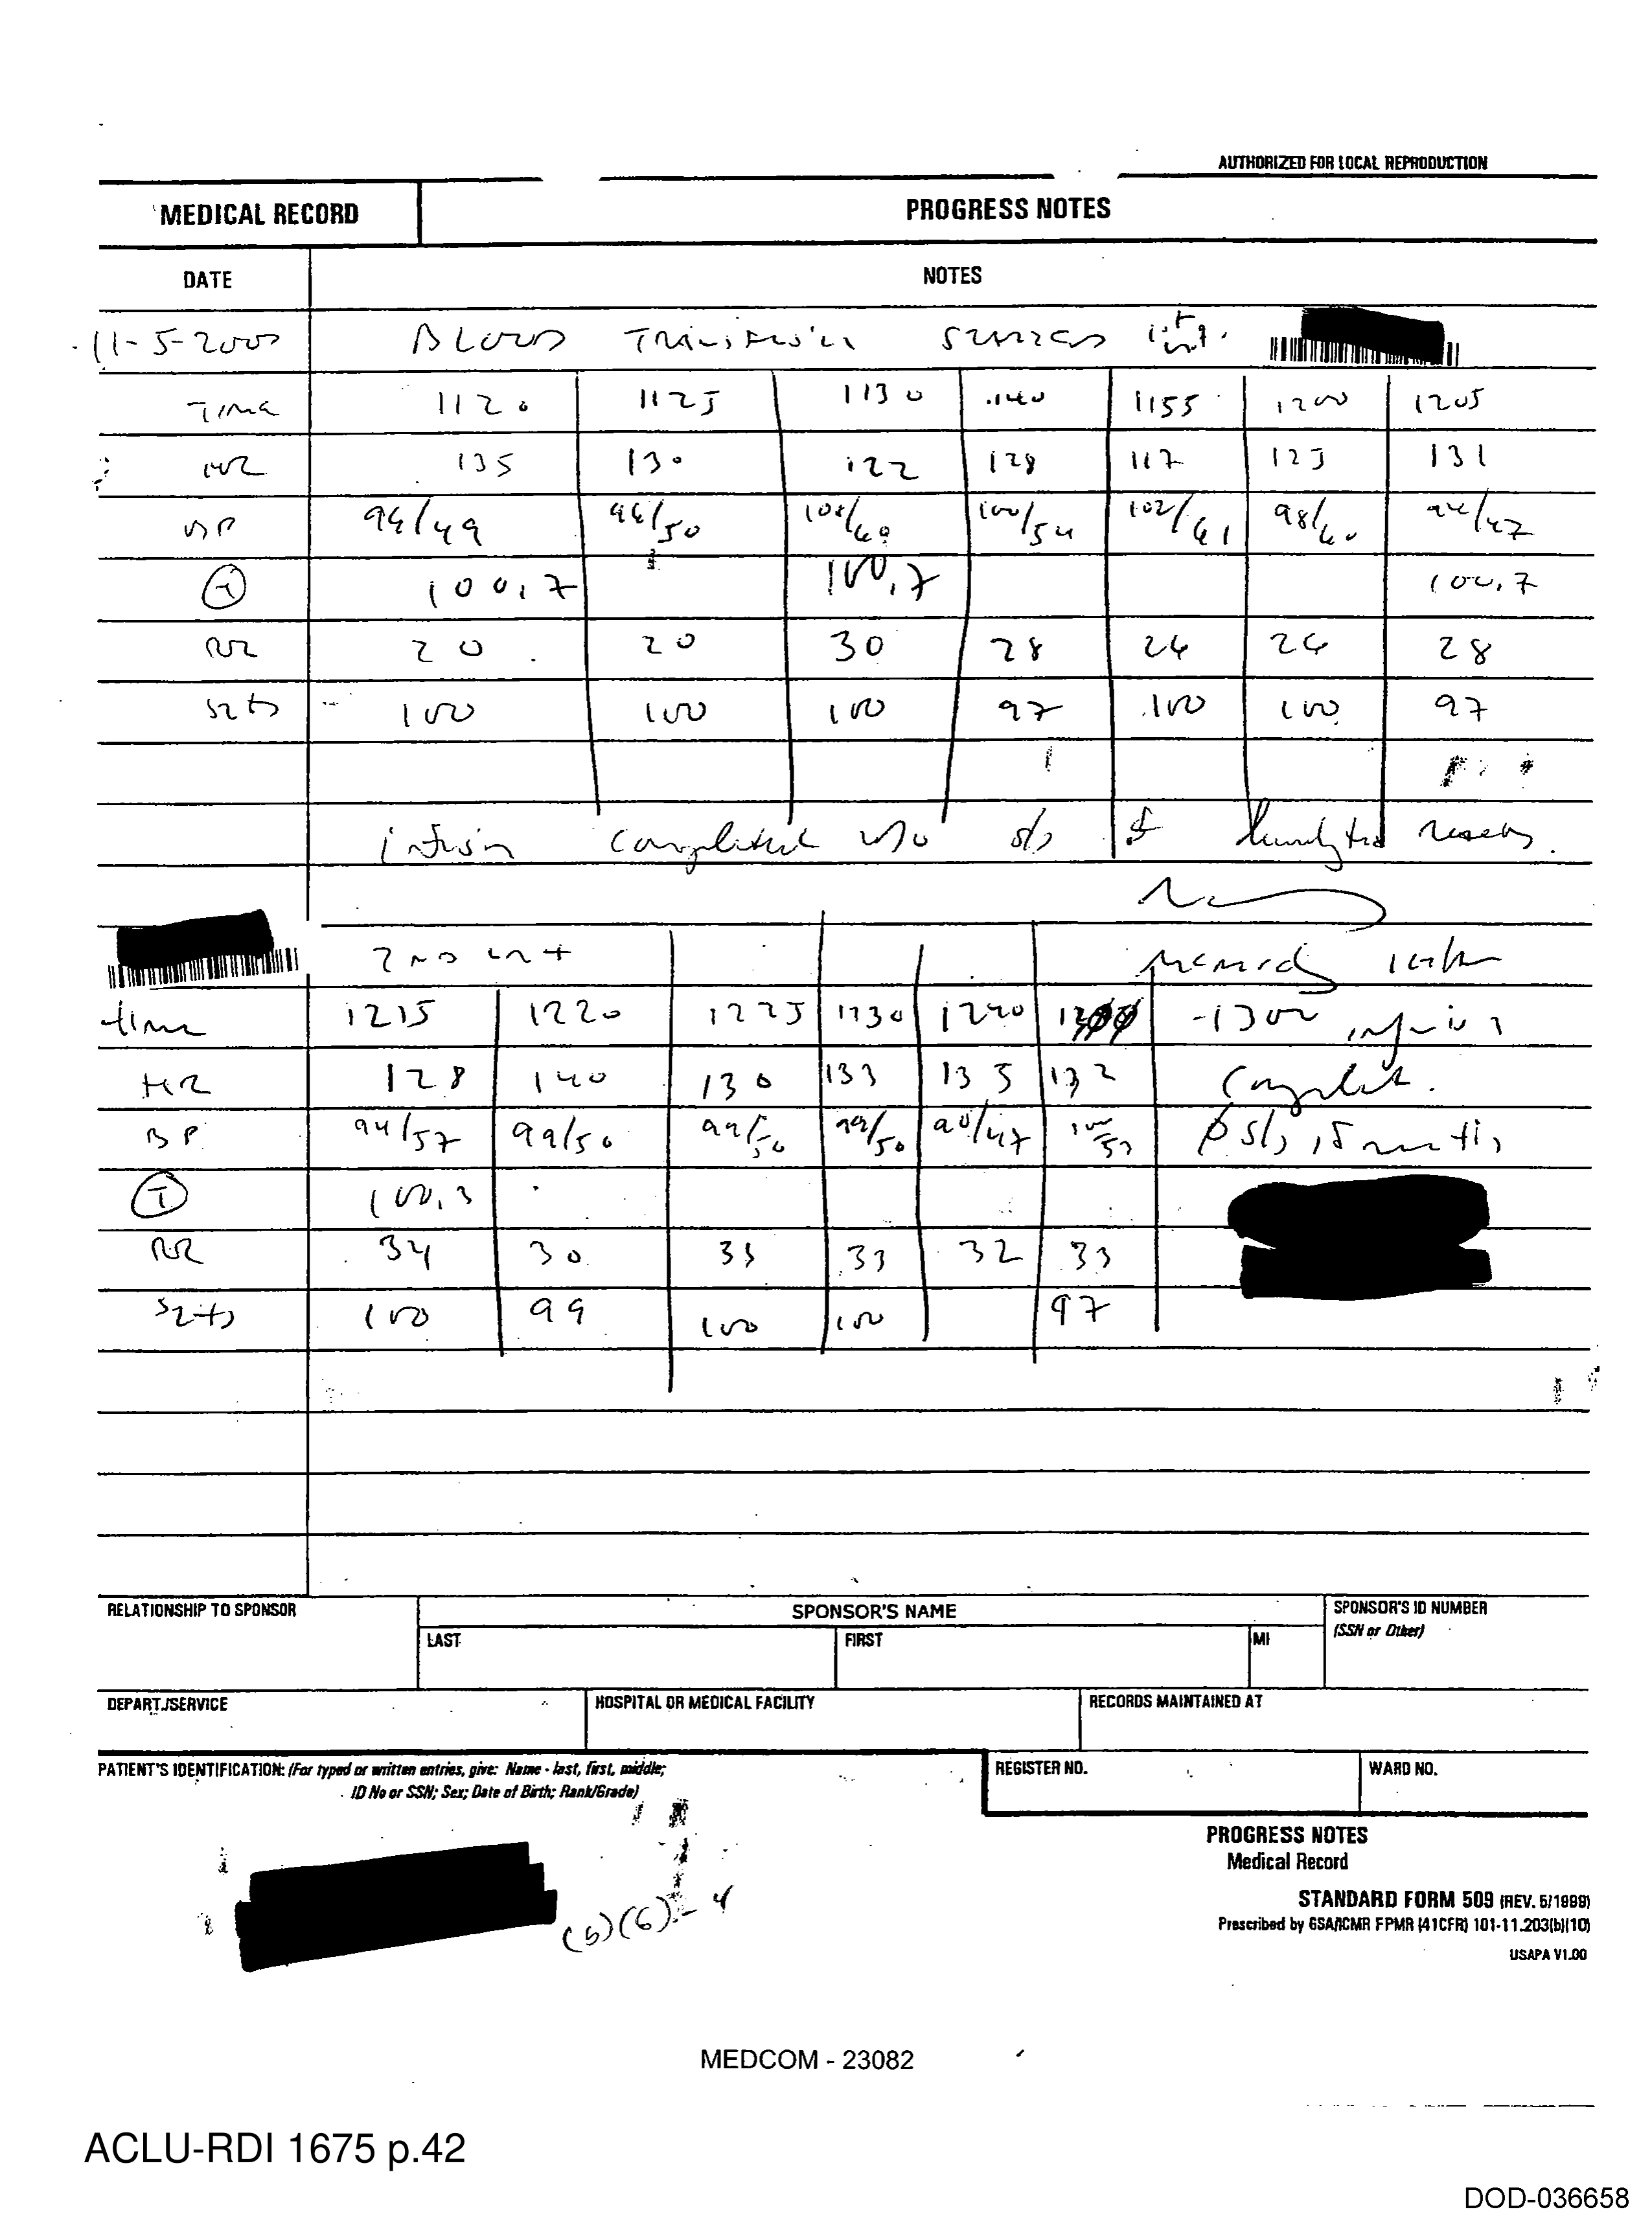 AUTHORIZED FOR LOCAL REPRODUCTION
MEDICAL RECORD PROGRESS NOTES
DATE NOTES
11-5-200 Blood Transfusion Started
Time 1120 1125 1130 1140 1155 1200 1205
HR 135 130 122 128 117 125 131
BP 94/49 96/50 108/60 100/54 102/61 98/60 94/47
T 100.7 100.7 100.7
RR 20 20 30 28 26 26 28
Sats 100 100 100 97 100 100 97
infusion completed w/o s/s of hemolytic
2nd unit
time 1215 1220 1225 1230 1240 -1300 infusion
HR 128 140 130 133 135 132 complete.
BP 94/57 99/50 99/50 99/50 90/47 Ø s/s
T 100.3
RR 34 30 33 33 32 33
Sats 100 99 100 100 97
RELATIONSHIP TO SPONSOR SPONSOR'S NAME SPONSOR'S ID NUMBER
LAST FIRST MI (SSN or Other)
DEPART./SERVICE HOSPITAL OR MEDICAL FACILITY RECORDS MAINTAINED AT
PATIENT'S IDENTIFICATION: (For typed or written entries, give: Name - last, first, middle; REGISTER NO. WARD NO.
ID No or SSN; Sex; Date of Birth; Rank/Grade)
PROGRESS NOTES
Medical Record
STANDARD FORM 509 (REV. 5/1999)
Prescribed by GSA/ICMR FPMR (41CFR) 101-11.203(b)(10)
USAPA V1.00
(b)(6)-4
MEDCOM - 23082
ACLU-RDI 1675 p.42
DOD-036658